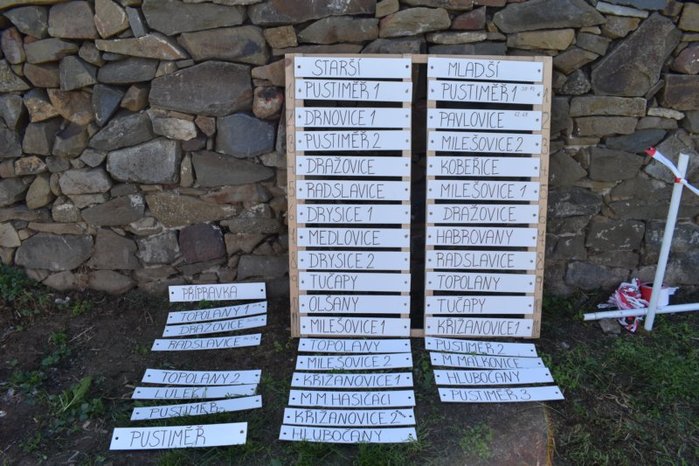 STARŠÍ
PUSTIMĚŘ 1
DRNOVICE 1
PUSTIMĚŘ 2
DRAŽOVICE
RADSLAVICE
DRYSICE 1
MEDLOVICE
DRYSICE 2
TUČAPY
OLŠANY
MILEŠOVICE 1
TOPOLANY
MILEŠOVICE 2
KŘIŽANOVICE 1
MM HASIČÁCI
KŘIŽANOVICE 2
HLUBOČANY
MLADŠÍ
PUSTIMĚŘ 1
PAVLOVICE
MILEŠOVICE 2
KOBEŘICE
MILEŠOVICE 1
DRAŽOVICE
HABROVANY
RADSLAVICE
TOPOLANY
TUČAPY
KŘIŽANOVICE 1
PUSTIMĚŘ 2
M MALKOVICE
HLUBOČANY
PUSTIMĚŘ 3
PŘÍPRAVKA
TOPOLANY 1
DRAŽOVICE
RADSLAVICE
TOPOLANY 2
LULEČ
PUSTIMĚŘ
PUSTIMĚŘ